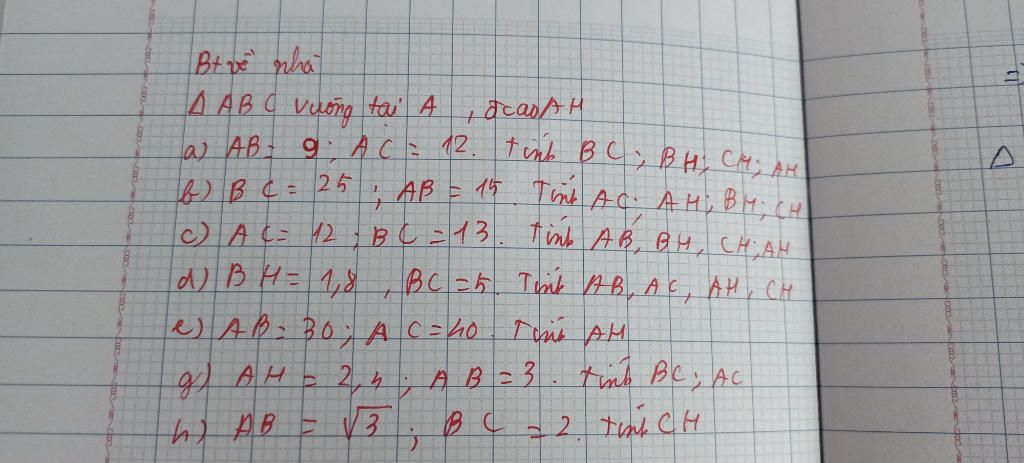 Bt về nhà
Δ ABC vuông tại A , đcao AH
a) AB = 9 ; AC = 12. Tính BC ; BH ; CH ; AH
b) BC = 25 ; AB = 15. Tính AC ; AH ; BH ; CH
c) AC = 12 ; BC = 13. Tính AB, BH, CH ; AH
d) BH = 1,8 , BC = 5. Tính AB, AC, AH, CH
e) AB = 30 ; AC = 40. Tính AH
g) AH = 2,4 ; AB = 3. Tính BC ; AC
h) AB = √3 ; BC = 2. Tính CH
=
Δ